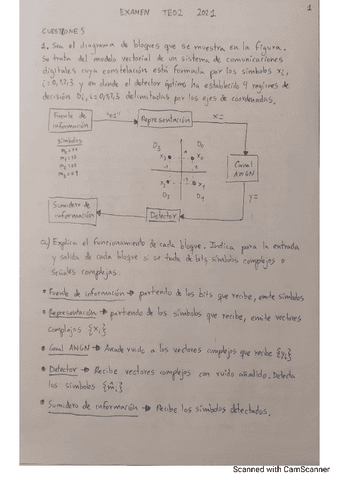 1
EXAMEN TEO2 2021
CUESTIONES
1. Sea el diagrama de bloques que se muestra en la figura.
Se trata del modelo vectorial de un sistema de comunicaciones
digitales cuya constelación está formada por los símbolos xi,
i=0,1,2,3 y en donde el detector óptimo ha establecido 4 regiones de
decisión Di, i=0,1,2,3 delimitadas por los ejes de coordenadas.
Fuente de
información
"01"
Representación
x=
símbolos
D3
D0
x3
x0
Canal
AWGN
D2
D1
y=
Sumidero de
información
Detector
a) Explica el funcionamiento de cada bloque. Indica para la entrada
y salida de cada bloque si se trata de bits símbolos complejos o
señales complejas.
• Fuente de información → partiendo de los bits que recibe, emite símbolos
• Representación → partiendo de los símbolos que recibe, emite vectores
complejos {xi}
• Canal AWGN → Añade ruido a los vectores complejos que recibe {yi}
• Detector → Recibe vectores complejos con ruido añadido. Detecta
los símbolos {m̂i}
• Sumidero de información → Recibe los símbolos detectados.
Scanned with CamScanner